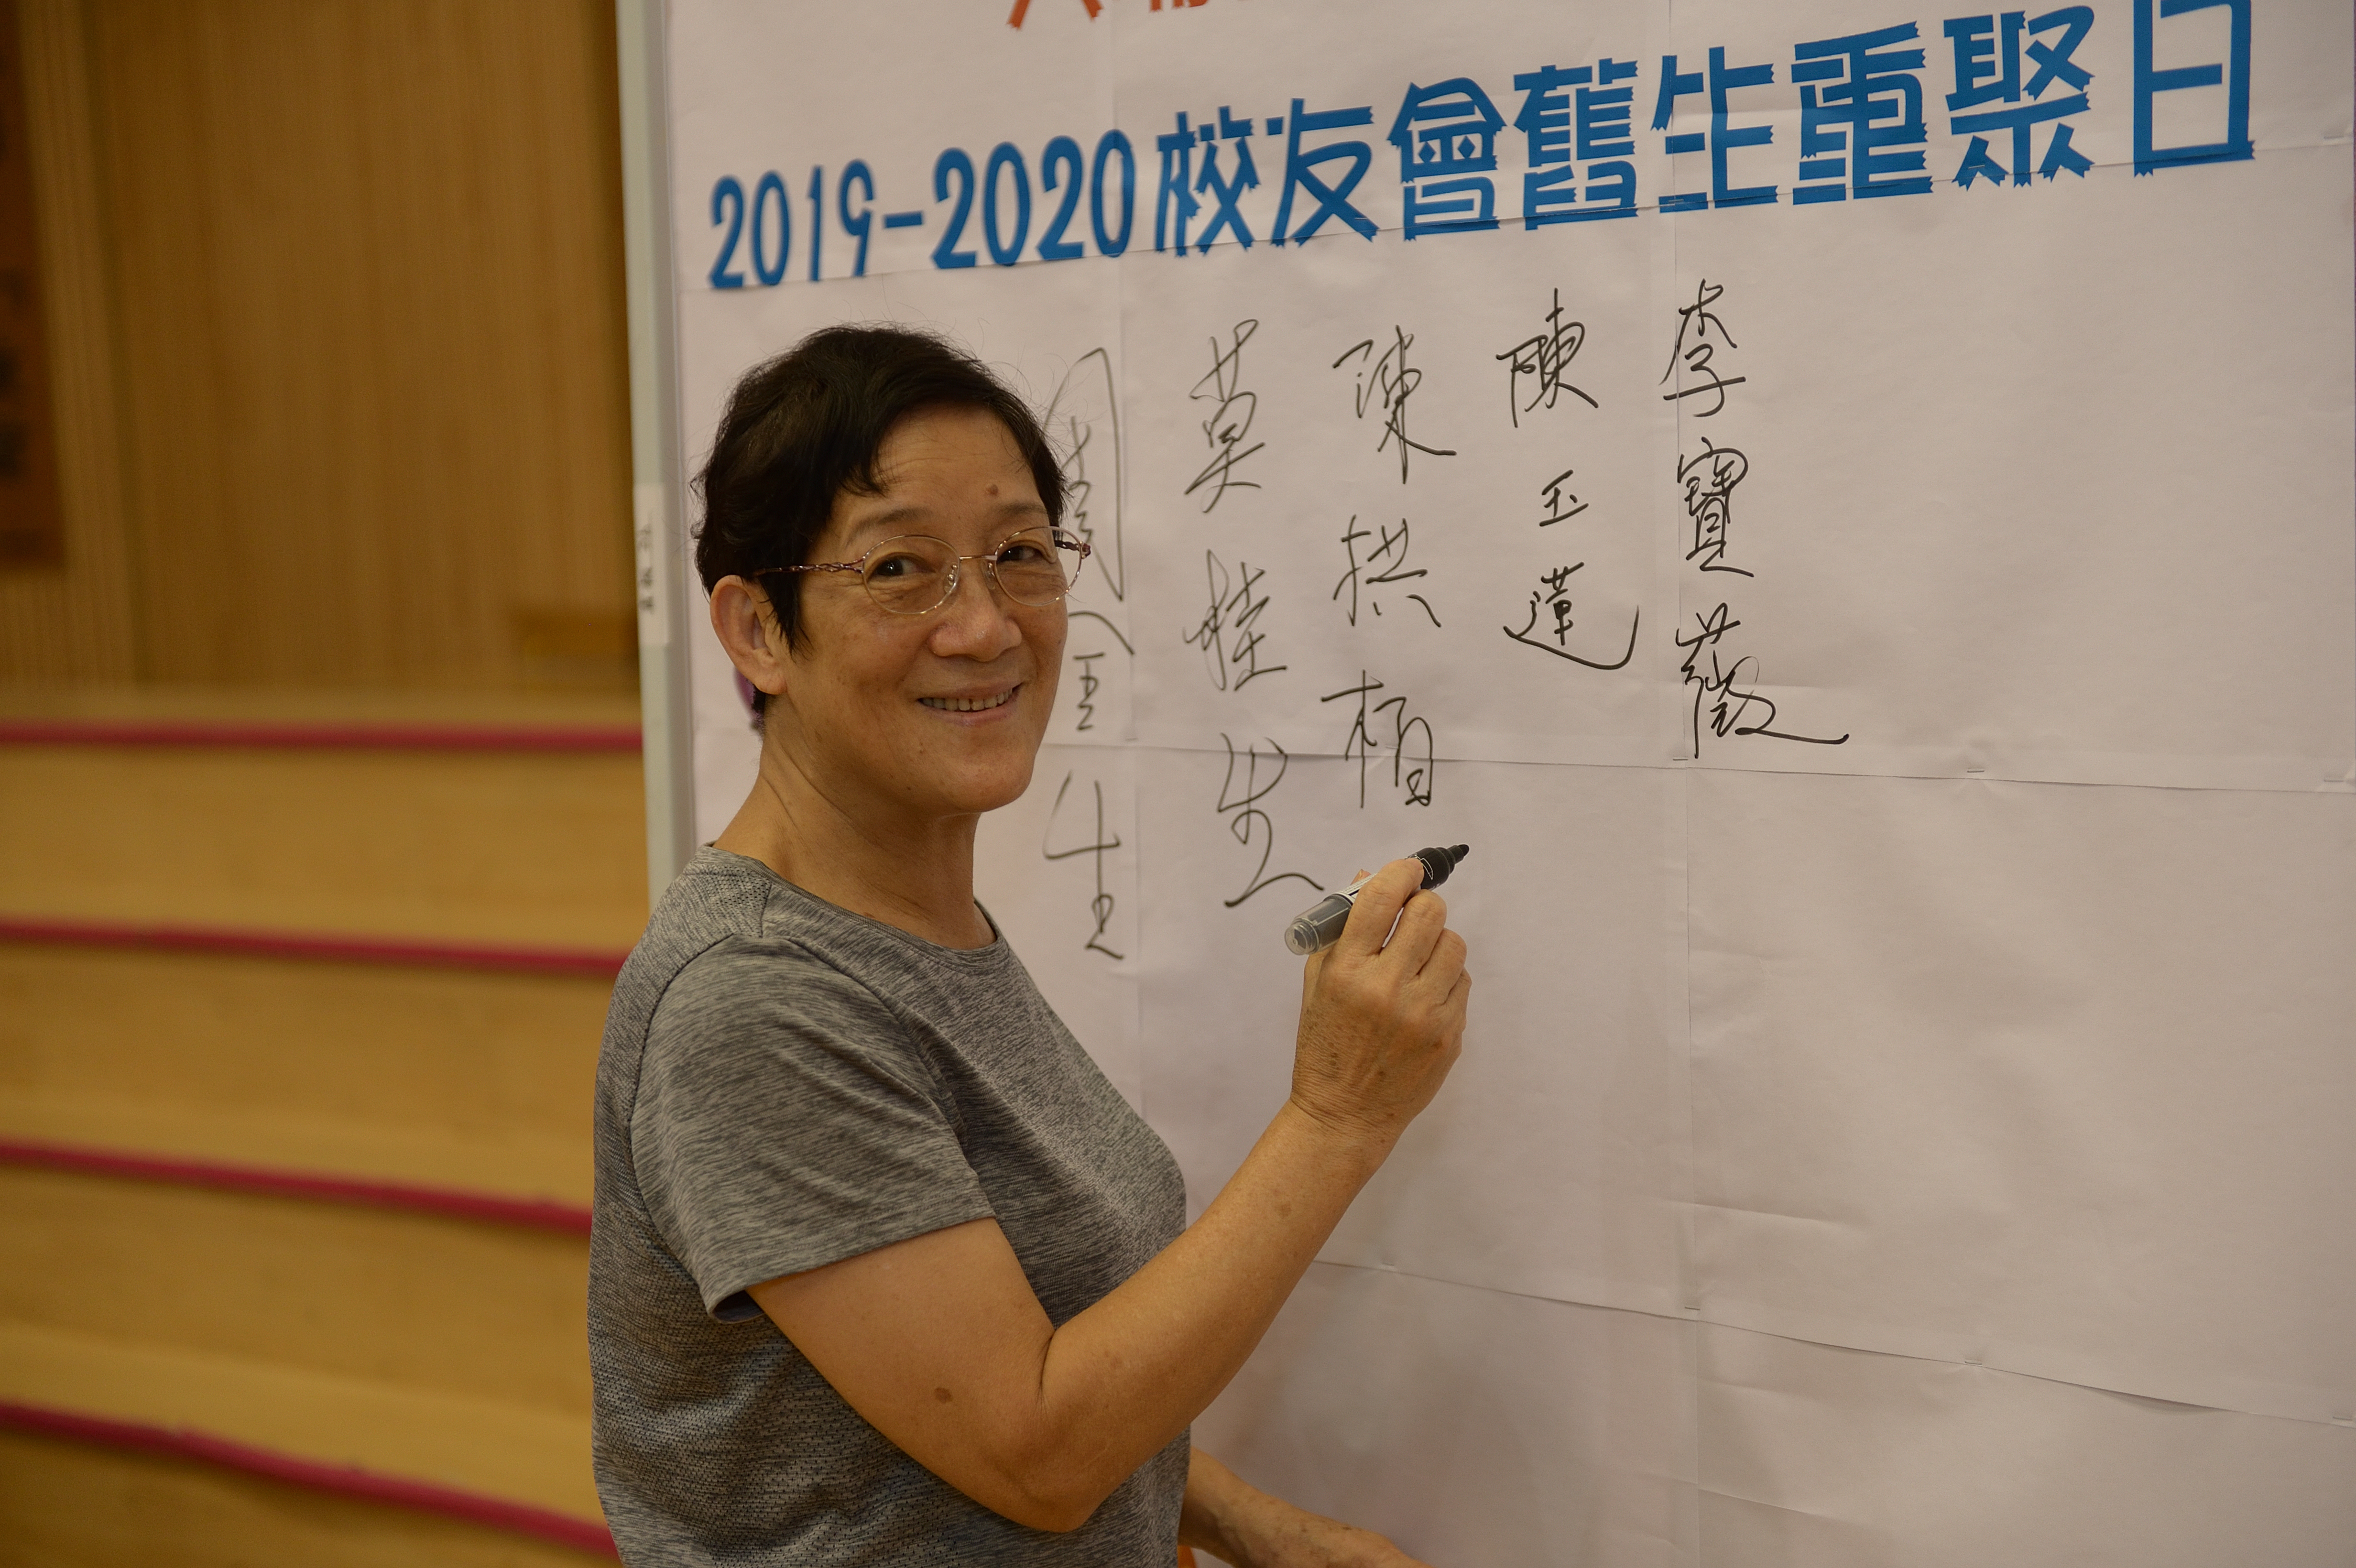 2019-2020校友會舊生重聚日
李寶薇
陳玉蓮
陳拱栢
莫桂生
周金生